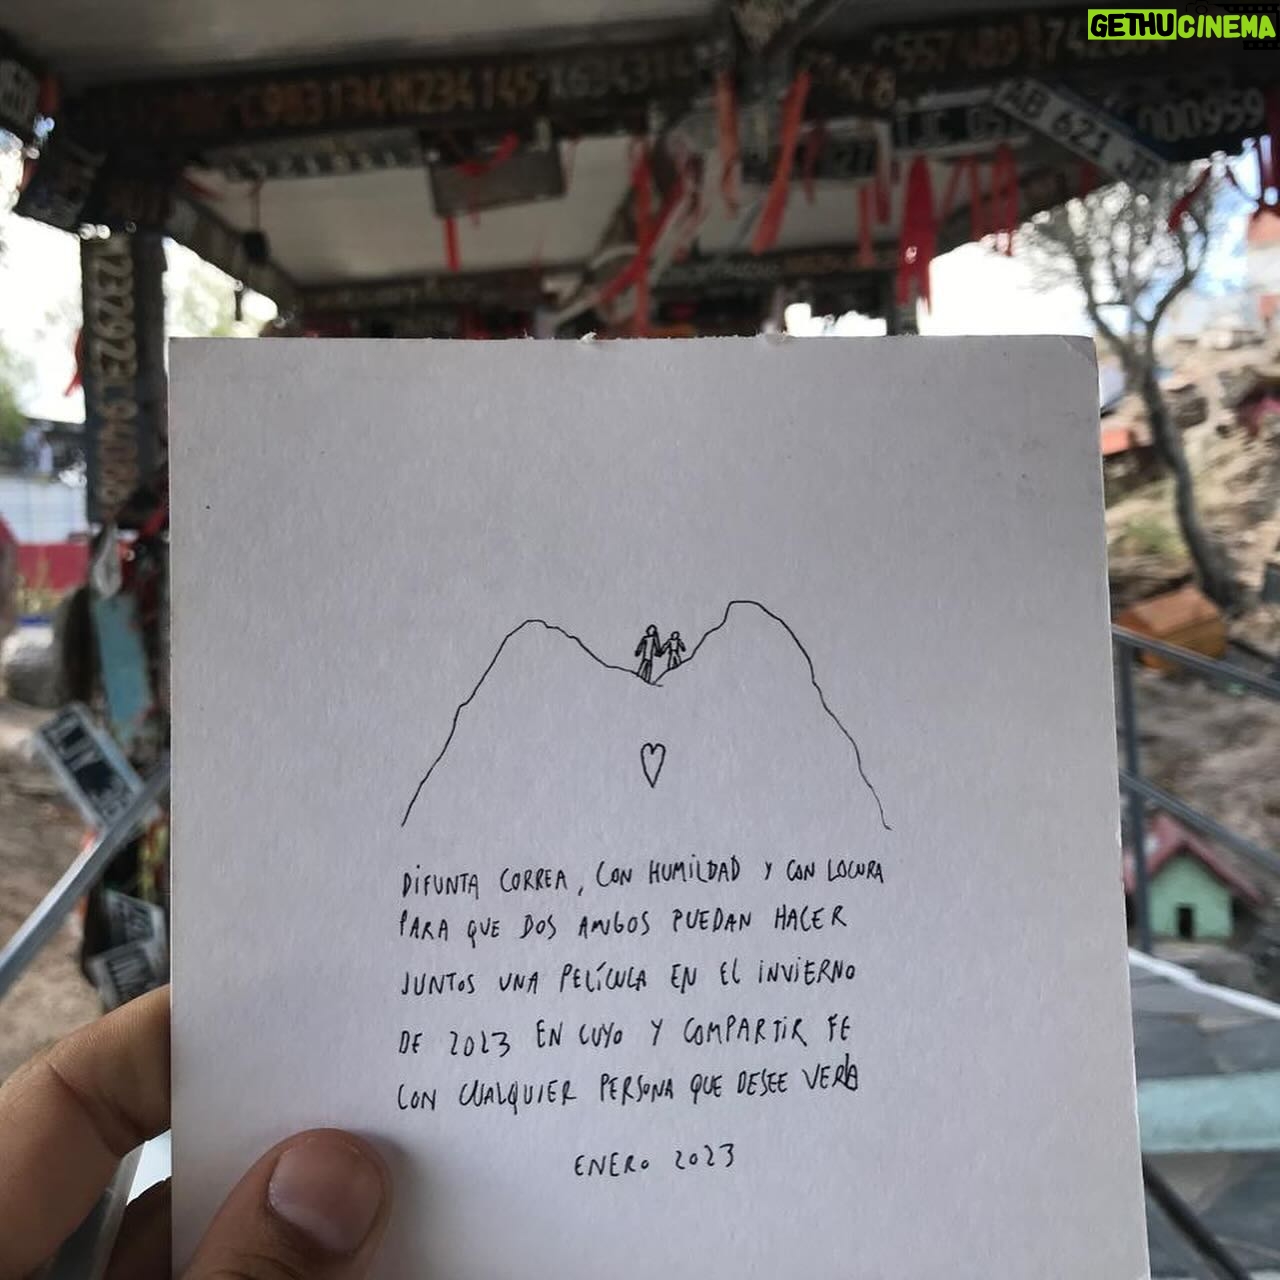 GETHUCINEMA
C983134M234145
AB 621
000959
DIFUNTA CORREA, CON HUMILDAD Y CON LOCURA
PARA QUE DOS AMIGOS PUEDAN HACER
JUNTOS UNA PELÍCULA EN EL INVIERNO
DE 2023 EN CUYO Y COMPARTIR FE
CON CUALQUIER PERSONA QUE DESEE VERLA
ENERO 2023